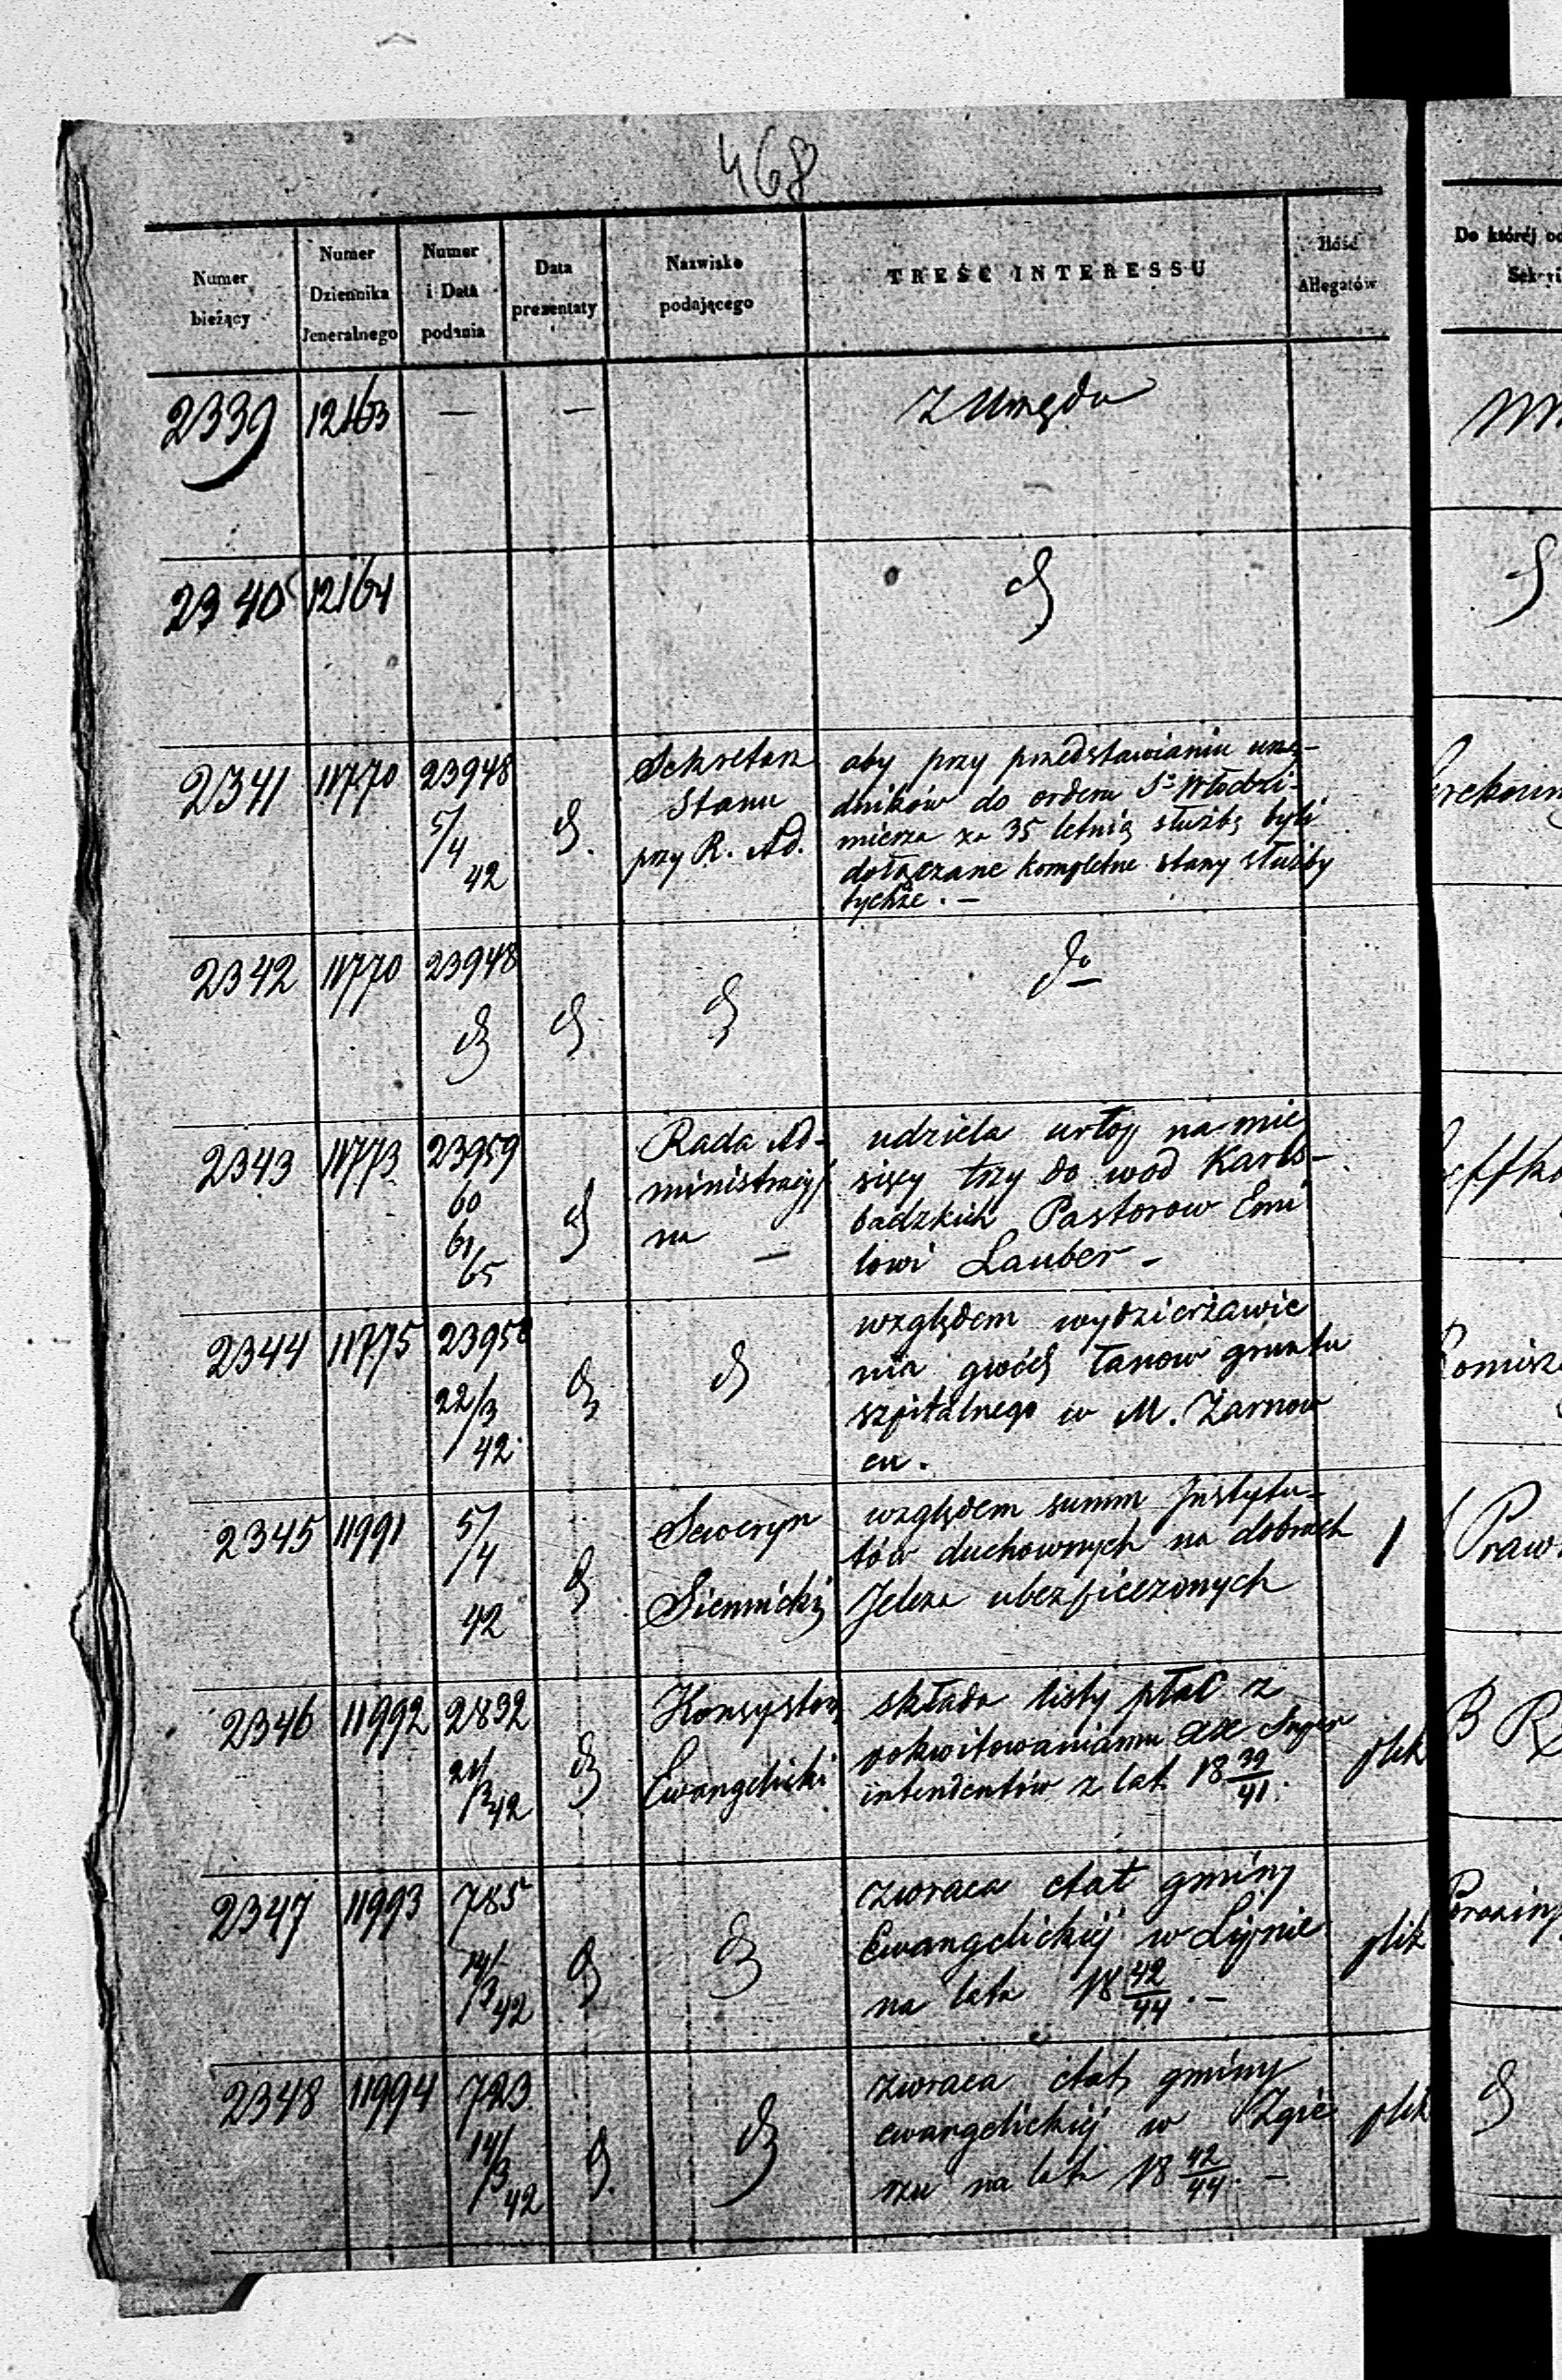 468
Numer bieżący
Numer Dziennika Jeneralnego
Numer i Data podania
Data prezentaty
Nazwisko podającego
TREŚĆ INTERESSU
Ilość Allegatów
Do któréj
2339 12163 — — Z Urzędu
2340 12164 d
2341 11770 23948 5/4 42 d.
Sekretarz
Stanu
przy R. Ad.
aby przy przedstawianiu urzę-
dników do orderu Sº Włodzi-
mierza za 35 letnią służbę byli
dołączane kompletne stany służby
tychże. —
2342 11770 23948 d d d dº
2343 11773 23959 60 61/65 d
Rada Ad-
ministracyj
na —
udziela urlop na mie
sięcy trzy do wód Karls-
badzkich Pastorow Emi
lowi Lauber —
2344 11775 23958 22/3 42 d d
względem wydzierżawie
nia łanow gruntu
szpitalnego w M. Żarnow
cu.
2345 11991 5/4 42 d
Seweryn
Siemnicki
względem summ Instytu-
tów duchownych na dobrach
Jelcza ubezpieczonych
1
2346 11992 2832 21/3 42 d
Konsystorz
Ewangelicki
składa listy płac z
pokwitowaniami XX Super
intendentów z lat 18 39/41.
plik
2347 11993 785 14/3 42 d d
zwraca etat gminy
Ewangelickiej w Lipnie
na lata 18 42/44. —
plik
2348 11994 723 14/3 42 d. d
zwraca etat gminy
ewangelickiej w Zgie
rzu na lata 18 42/44. —
plik